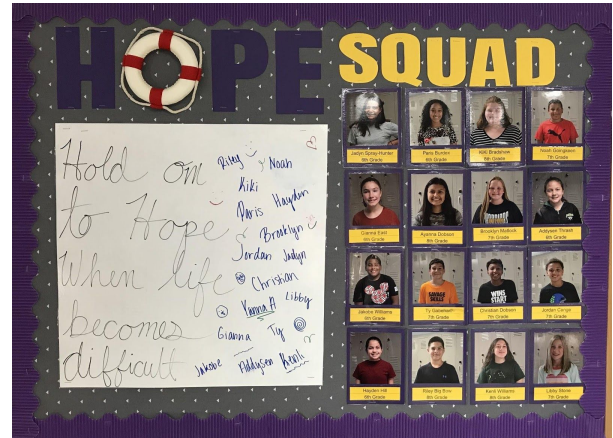 HOPE
SQUAD
Hold on
to Hope
When life
becomes
difficult
Riley
Noah
Kiki
Paris Haydon
Brooklyn
Jordan Jadyn
Christian
Yanna A Libby
Gianna Ty
Jakobe Addysen Kenli
Jadyn Spray-Hunter
6th Grade
Paris Burdex
6th Grade
Kiki Bradshaw
6th Grade
Noah
7th Grade
Gianna
6th Grade
Ayanna Dobson
8th Grade
Brooklyn
7th Grade
Addysen Thrash
8th Grade
Jakobe Williams
8th Grade
Ty
7th Grade
Christian Dobson
7th Grade
Jordan
7th Grade
Haydon Hill
8th Grade
Riley Big
Kenli Williams
Libby Stone
7th Grade
WINS
START